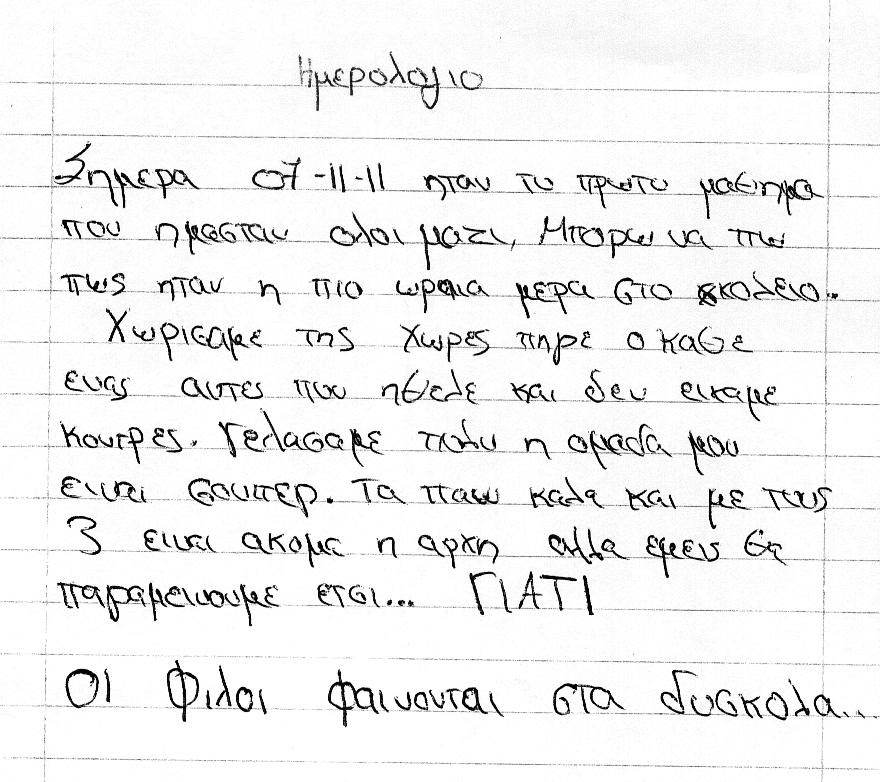 Ημερολογιο
Σημερα 07-11-11 ηταν το πρωτο μαθημα
που ημασταν ολοι μαζι, Μπορω να πω
πως ηταν η πιο ωραια μερα στο σκολειο..
Χωρισαμε της χωρες πηρε ο καθε
ενας αυτες που ηθελε και δεν εικαμε
κοντρες. Γελασαμε πολυ η ομαδα μου
ειναι σουπερ. Τα παω καλα και με τους
3 ειναι ακομα η αρχη αλλα εμεις θα
παραμεινουμε ετσι... ΓΙΑΤΙ
ΟΙ Φιλοι φαινονται στα δυσκολα...